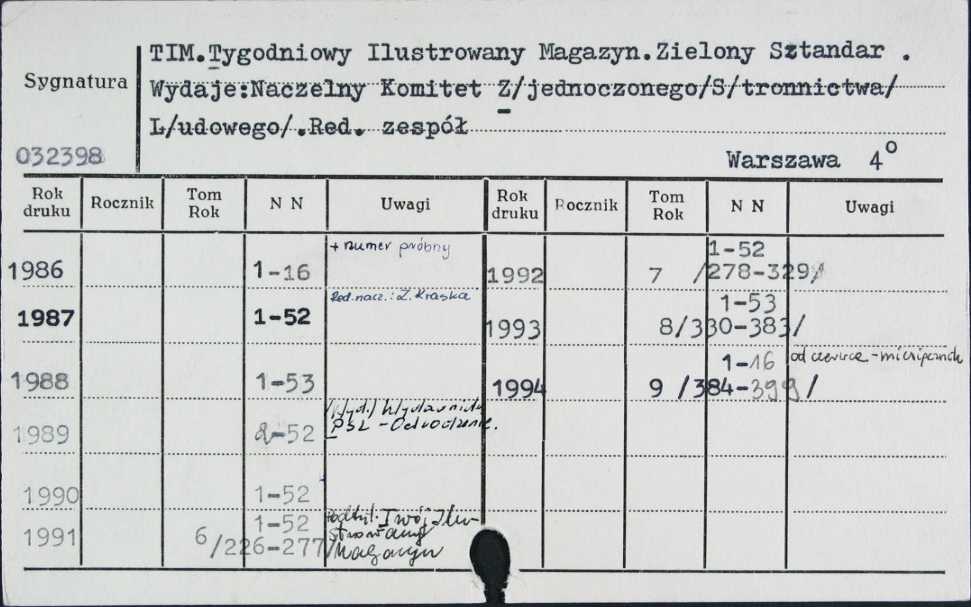 TIM.Tygodniowy Ilustrowany Magazyn.Zielony Sztandar .
Sygnatura
Wydaje:Naczelny Komitet Z/jednoczonego/S/tronnictwa/
L/udowego/.Red. zespół
032398
Warszawa 4º
Rok druku Rocznik Tom Rok N N Uwagi Rok druku Rocznik Tom Rok N N Uwagi
1986 1-16 + numer próbny
1987 1-52 Red. nacz.: Z. Kraska
1988 1-53
1989 2-52 /Wyd./ Wydawnictwo
PSL - Odrodzenie.
1990 1-52
1991 6 1-52
/226-277/ Podtyt. Twój Ilu-
strowany
Magazyn
1992 7 1-52
/278-329/
1993 8 1-53
/330-383/
1994 9 1-16
/384-399/ od czerwca - miesięcznik